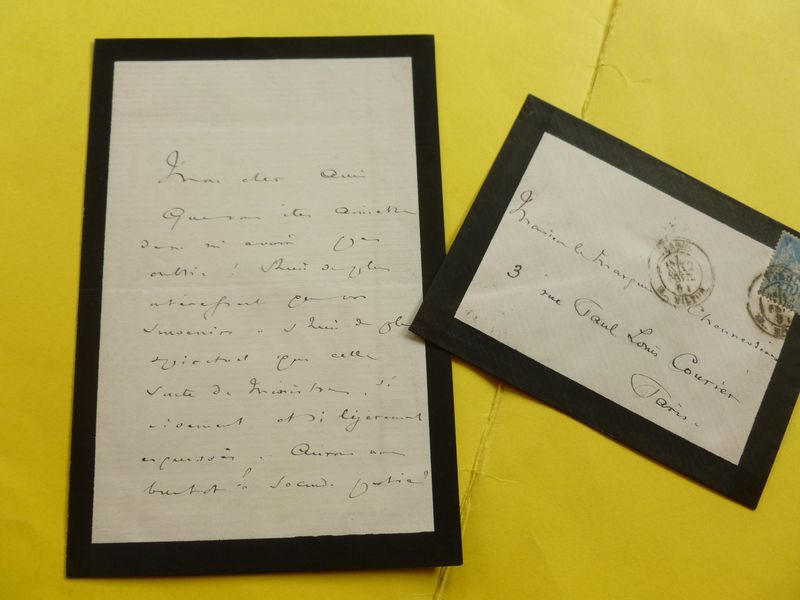 Mon cher Ami.
Que vous êtes aimable
de ne m'avoir pas
oublié ! Rien de plus
intéressant que vos
souvenirs. & rien de plus
spirituel que cette
suite de Ministres, si
vivement et si légèrement
esquissés. Aurons nous
bientôt la seconde partie?
Monsieur le Marquis
Chennevières
3 rue Paul Louis Courier
Paris.
PARIS
R. MILTON